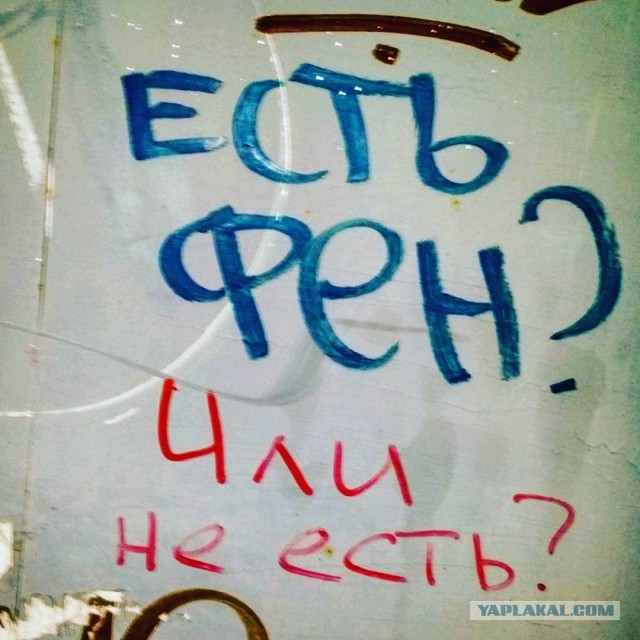 Есть
Фен?
Или
не есть?
YAPLAKAL.COM